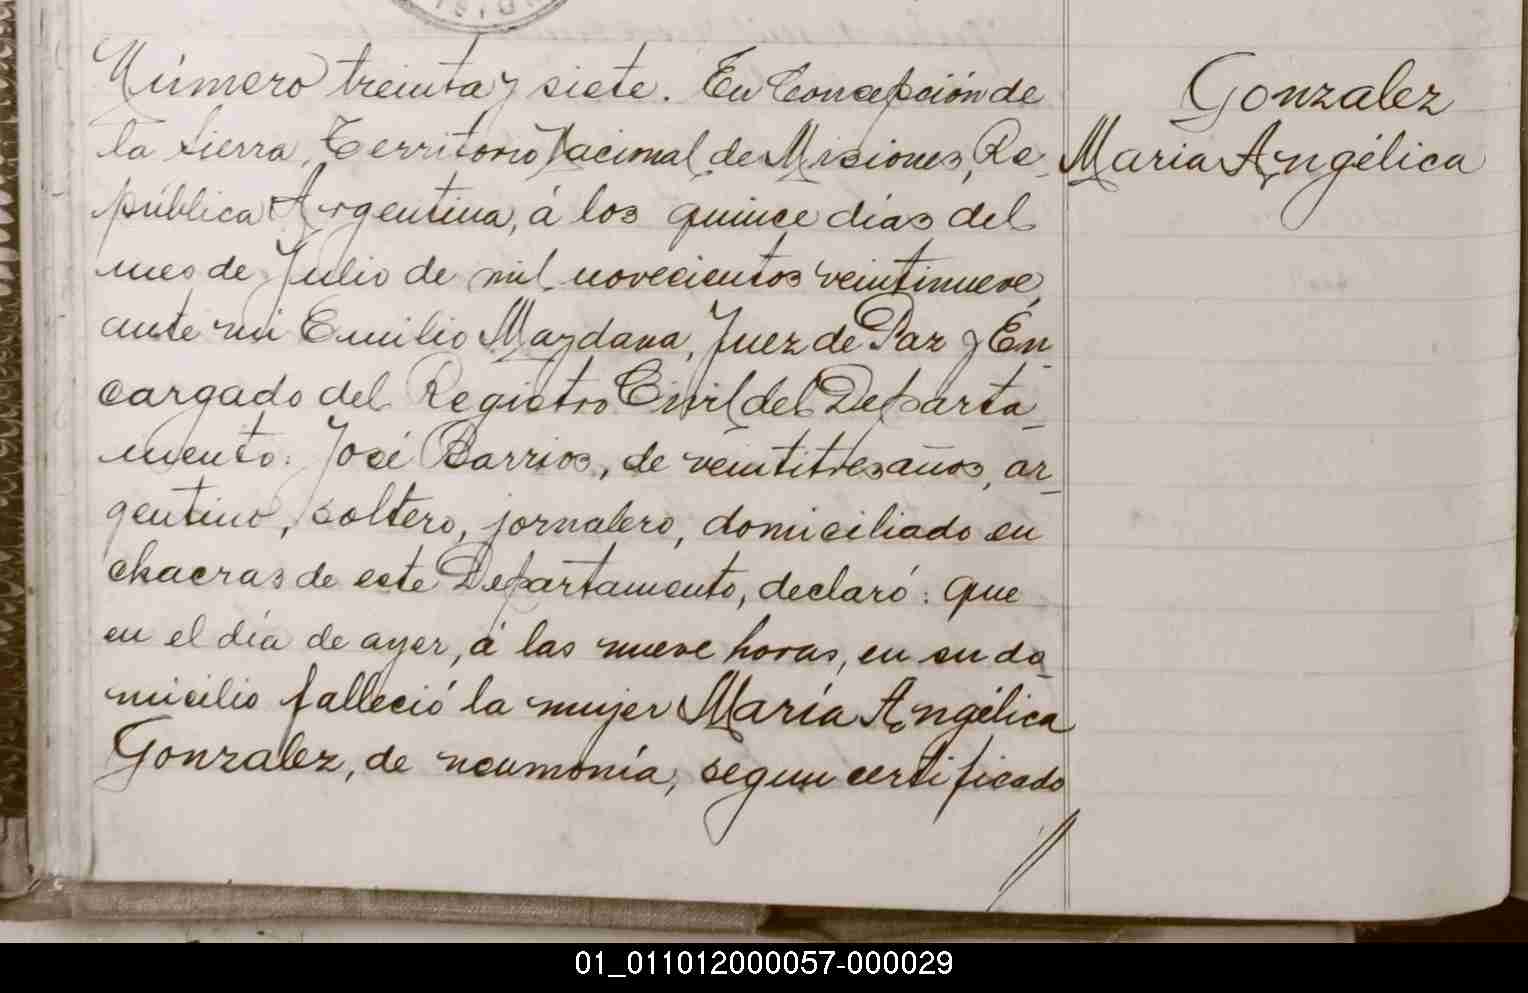 Número treinta y siete. En Concepción de
la Sierra, Territorio Nacional de Misiones, Re-
pública Argentina, á los quince dias del
mes de Julio de mil novecientos veintinueve,
ante mi Emilio Maydana, Juez de Paz y En-
cargado del Registro Civil del Departa-
mento: José Barrios, de veintitres años, ar-
gentino, soltero, jornalero, domiciliado en
chacras de este Departamento, declaró: que
en el día de ayer, á las nueve horas, en su do-
micilio falleció la mujer María Angélica
Gonzalez, de neumonía, segun certificado
Gonzalez
Maria Angélica
01_011012000057-000029